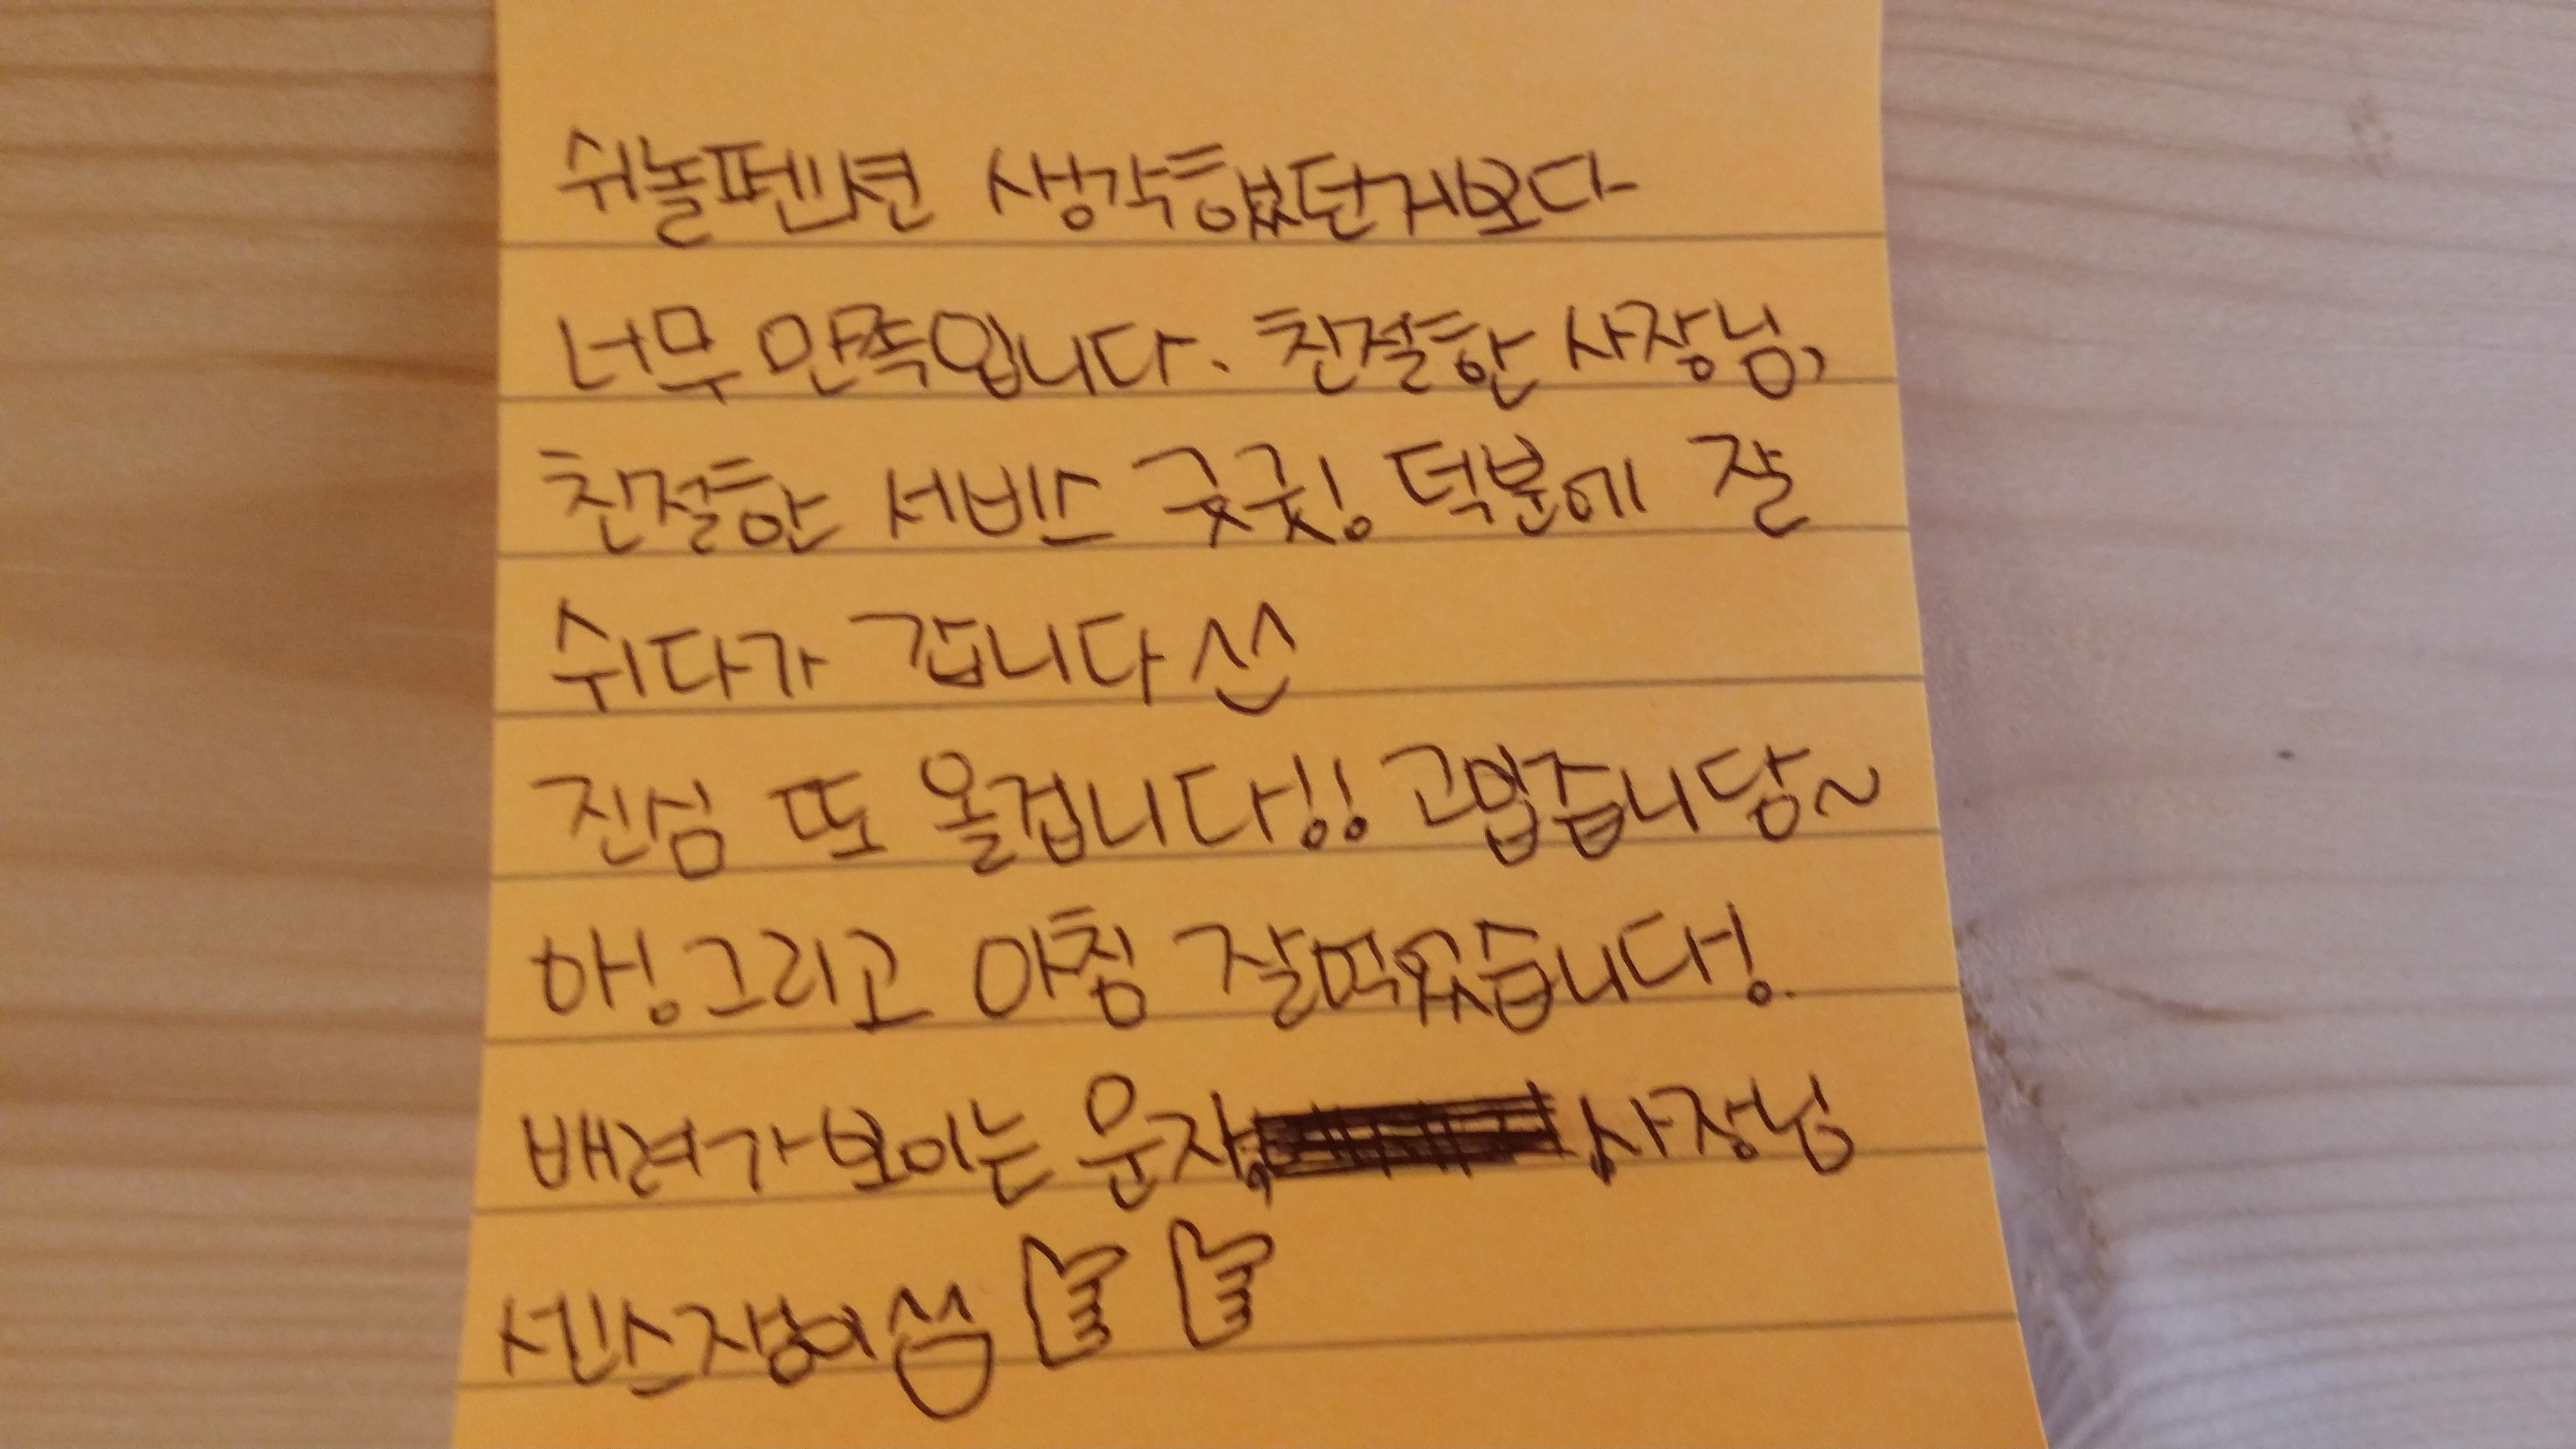 쉬놀펜션 생각했던거보다
너무 만족입니다. 친절한 사장님,
친절한 서비스 굿굿! 덕분에 잘
쉬다가 갑니다 ^^
진심 또 올겁니다!! 고맙습니담~
아! 그리고 아침 잘먹었습니다!
배려가보이는 문자, 사장님
센스쟁이